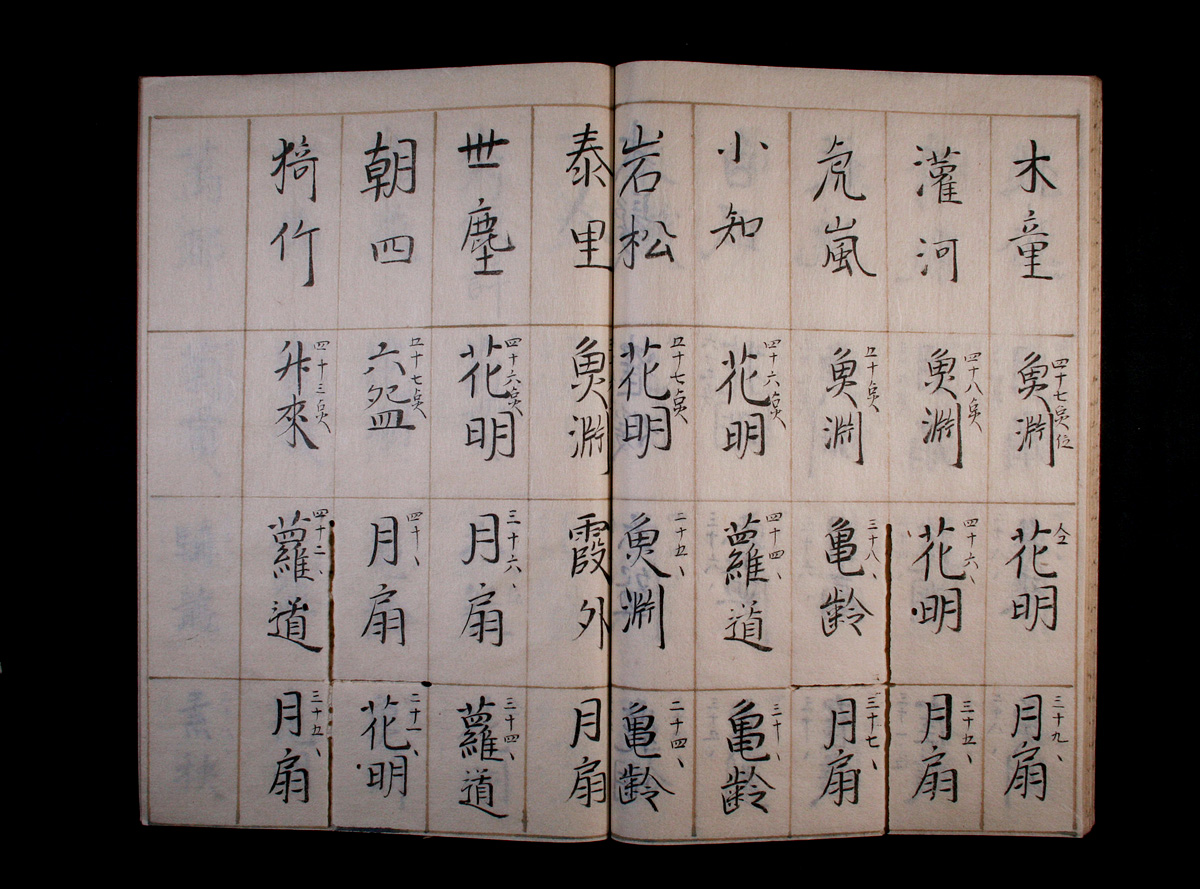 木童
四十七奌位
魚淵
仝
花明
三十九、
月扇
灌河
四十八奌
魚淵
四十六、
花明
三十五、
月扇
虎嵐
五十奌
魚淵
三十八、
亀齢
三十七、
月扇
小知
四十六奌
花明
四十四、
蘿道
三十、
亀齢
岩松
五十七奌
花明
二十五、
魚淵
二十四、
亀齢
泰里
魚淵
霞外
月扇
世塵
四十六奌
花明
三十六、
月扇
三十四、
蘿道
朝四
五十七奌
六盌
四十、
月扇
二十一、
花明
猗竹
四十三奌
升來
四十二、
蘿道
三十五、
月扇